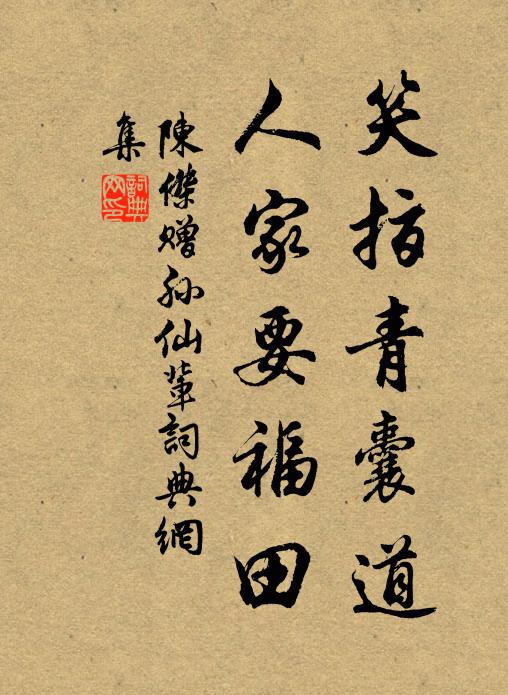 笑指青囊道
人家要福田
陳傑贈孙仙輩詞典網
集
詞典網印